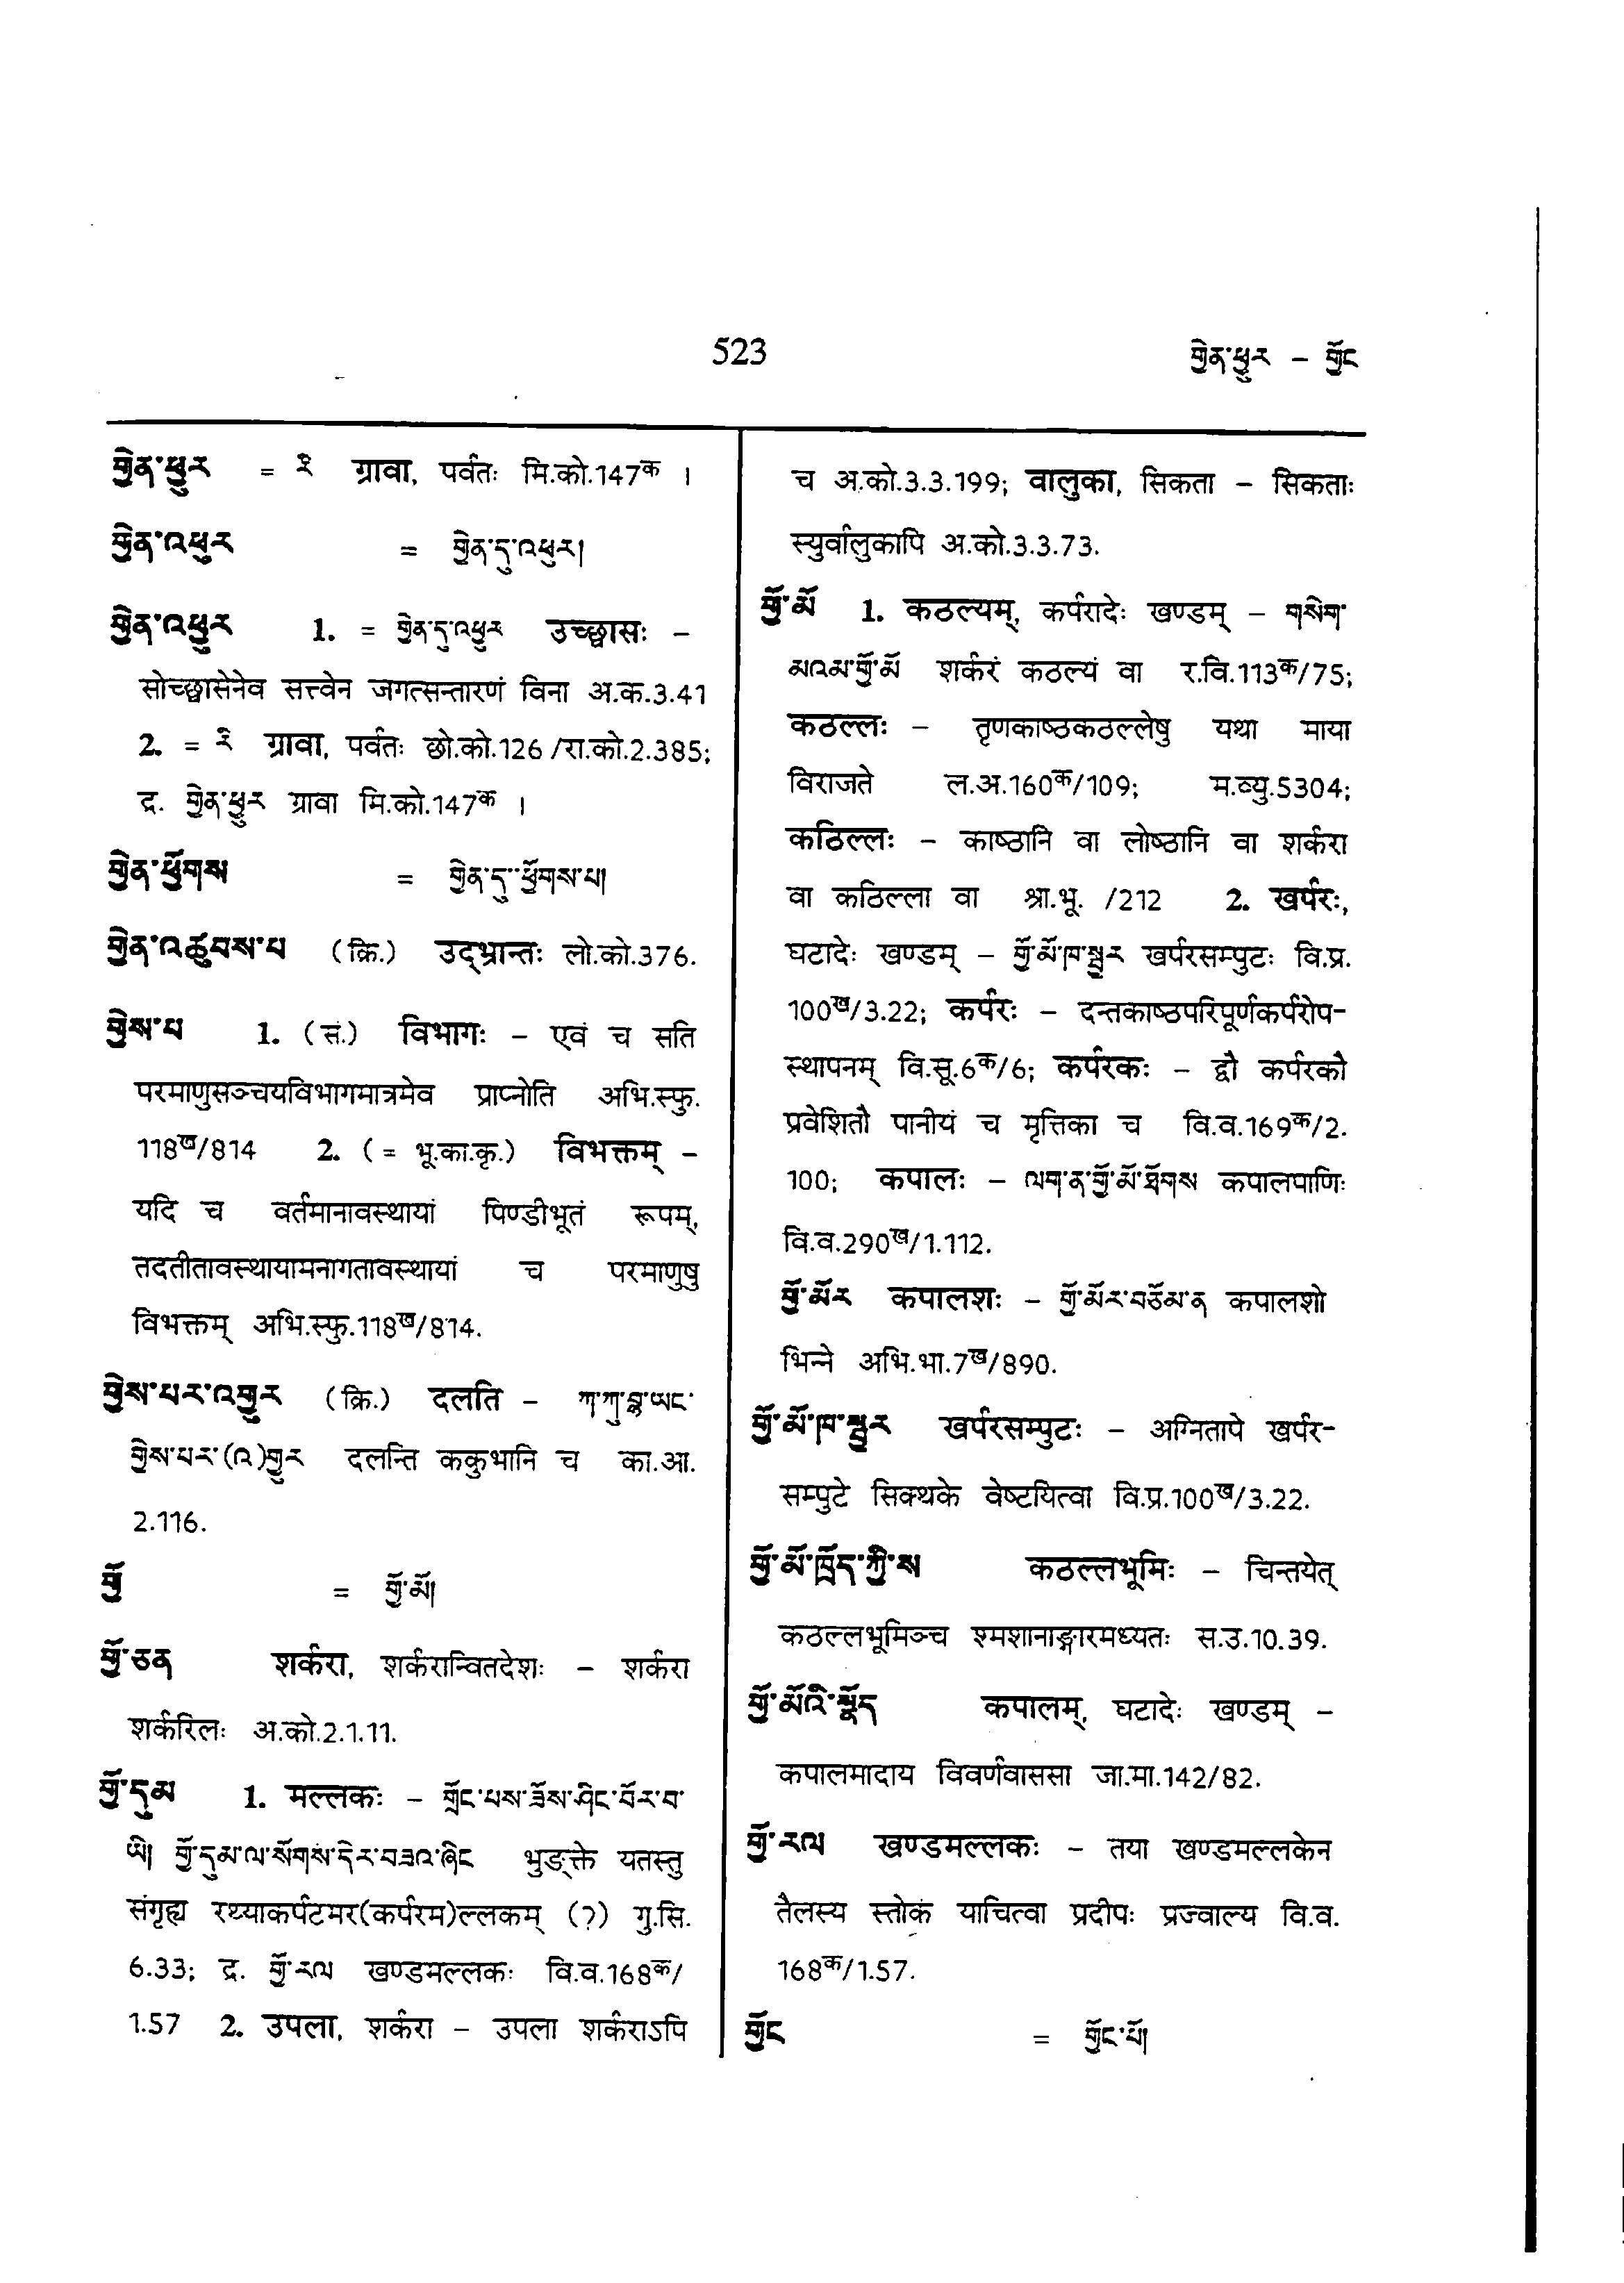 523
གྱེན་ཕྱུར – གྱོང
གྱེན་ཕྱུར = རི ग्रावा, पर्वतः मि.को.147क ।
གྱེན་འཕུར = གྱེན་དུ་འཕུར།
གྱེན་འཕྱུར 1. = གྱེན་དུ་འཕྱུར उच्छ्वासः –
सोच्छ्वासेनेव सत्त्वेन जगत्सन्तारणं विना अ.क.3.41
2. = རི ग्रावा, पर्वतः छो.को.126 /रा.को.2.385;
द्र. གྱེན་ཕྱུར ग्रावा मि.को.147क ।
གྱེན་ཕྱོགས = གྱེན་དུ་ཕྱོགས་པ།
གྱེན་འཚུབས་པ (क्रि.) उद्भ्रान्तः लो.को.376.
གྱེས་པ 1. (सं.) विभागः – एवं च सति
परमाणुसञ्चयविभागमात्रमेव प्राप्नोति अभि.स्फु.
118ख/814 2. (= भू.का.कृ.) विभक्तम् –
यदि च वर्तमानावस्थायां पिण्डीभूतं रूपम्,
तदतीतावस्थायामनागतावस्थायां च परमाणुषु
विभक्तम् अभि.स्फु.118ख/814.
གྱེས་པར་འགྱུར (क्रि.) दलति – ཀ་ཀུ་བྷ་ཡང་
གྱེས་པར་(འ)གྱུར दलन्ति ककुभानि च का.आ.
2.116.
གྱོ = གྱོ་མོ།
གྱོ་ཅན शर्करा, शर्करान्वितदेशः – शर्करा
शर्करिलः अ.को.2.1.11.
གྱོ་དུམ 1. मल्लकः – གྲོང་པས་ཟོས་ཤིང་བོར་བ་
ཡི། གྱོ་དུམ་ལ་སོགས་དེར་བཟའ་ཞིང भुङ्क्ते यतस्तु
संगृह्य रथ्याकर्पटमर(कर्परम)ल्लकम् (?) गु.सि.
6.33; द्र. གྱོ་རལ खण्डमल्लकः वि.व.168क/
1.57 2. उपला, शर्करा – उपला शर्कराऽपि
च अ.को.3.3.199; वालुका, सिकता – सिकताः
स्युर्वालुकापि अ.को.3.3.73.
གྱོ་མོ 1. कठल्यम्, कर्परादेः खण्डम् – གསེག་
མའམ་གྱོ་མོ शर्करं कठल्यं वा र.वि.113क/75;
कठल्लः – तृणकाष्ठकठल्लेषु यथा माया
विराजते ल.अ.160क/109; म.व्यु.5304;
कठिल्लः – काष्ठानि वा लोष्ठानि वा शर्करा
वा कठिल्ला वा श्रा.भू. /212 2. खर्परः,
घटादेः खण्डम् – གྱོ་མོ་ཁ་སྦྱར खर्परसम्पुटः वि.प्र.
100ख/3.22; कर्परः – दन्तकाष्ठपरिपूर्णकर्परोप-
स्थापनम् वि.सू.6क/6; कर्परकः – द्वौ कर्परकौ
प्रवेशितौ पानीयं च मृत्तिका च वि.व.169क/2.
100; कपालः – ལག་ན་གྱོ་མོ་ཐོགས कपालपाणिः
वि.व.290ख/1.112.
གྱོ་མོར कपालशः – གྱོ་མོར་བཅོམ་ན कपालशो
भिन्ने अभि.भा.7ख/890.
གྱོ་མོ་ཁ་སྦྱར खर्परसम्पुटः – अग्नितापे खर्पर-
सम्पुटे सिक्थके वेष्टयित्वा वि.प्र.100ख/3.22.
གྱོ་མོ་ཁྲོད་ཀྱི་ས कठल्लभूमिः – चिन्तयेत्
कठल्लभूमिञ्च श्मशानाङ्गारमध्यतः स.उ.10.39.
གྱོ་མོའི་སྣོད कपालम्, घटादेः खण्डम् –
कपालमादाय विवर्णवाससा जा.मा.142/82.
གྱོ་རལ खण्डमल्लकः – तया खण्डमल्लकेन
तैलस्य स्तोकं याचित्वा प्रदीपः प्रज्वाल्य वि.व.
168क/1.57.
གྱོང = གྱོང་པོ།